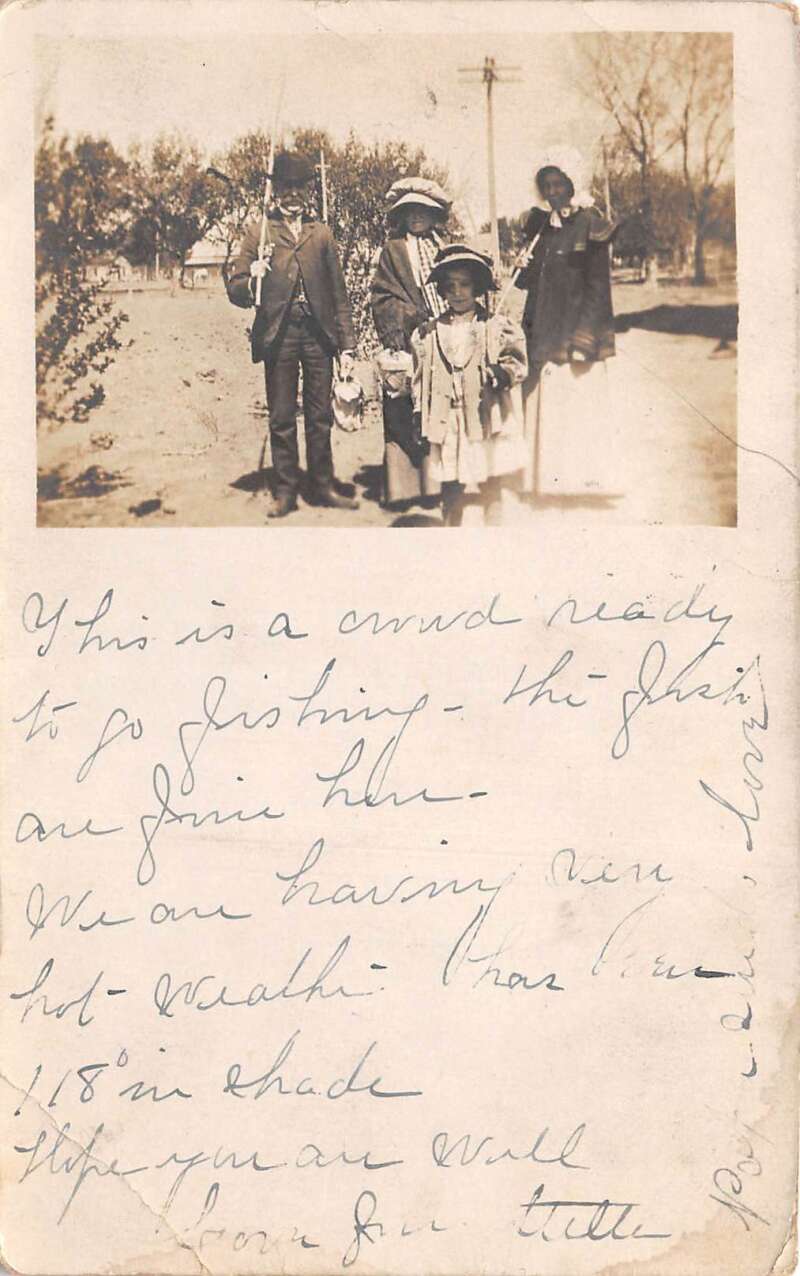 This is a crowd ready
to go fishing - the fish
are fine here -
We are having very
hot weather has been
118° in shade
Hope you are well
Love from Stella
Papa sends love